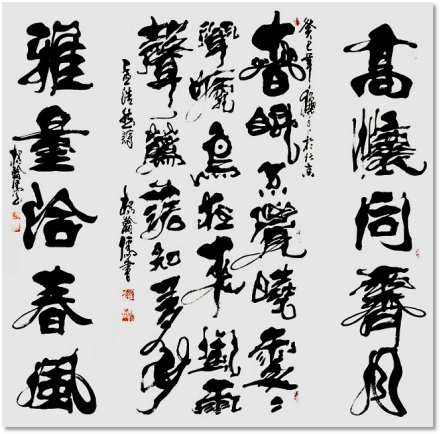 高懷同霽月
癸巳年
於北京
春眠不覺曉處々
聞啼鳥夜來風雨
聲花落知多少
孟浩然詩
雅量洽春風